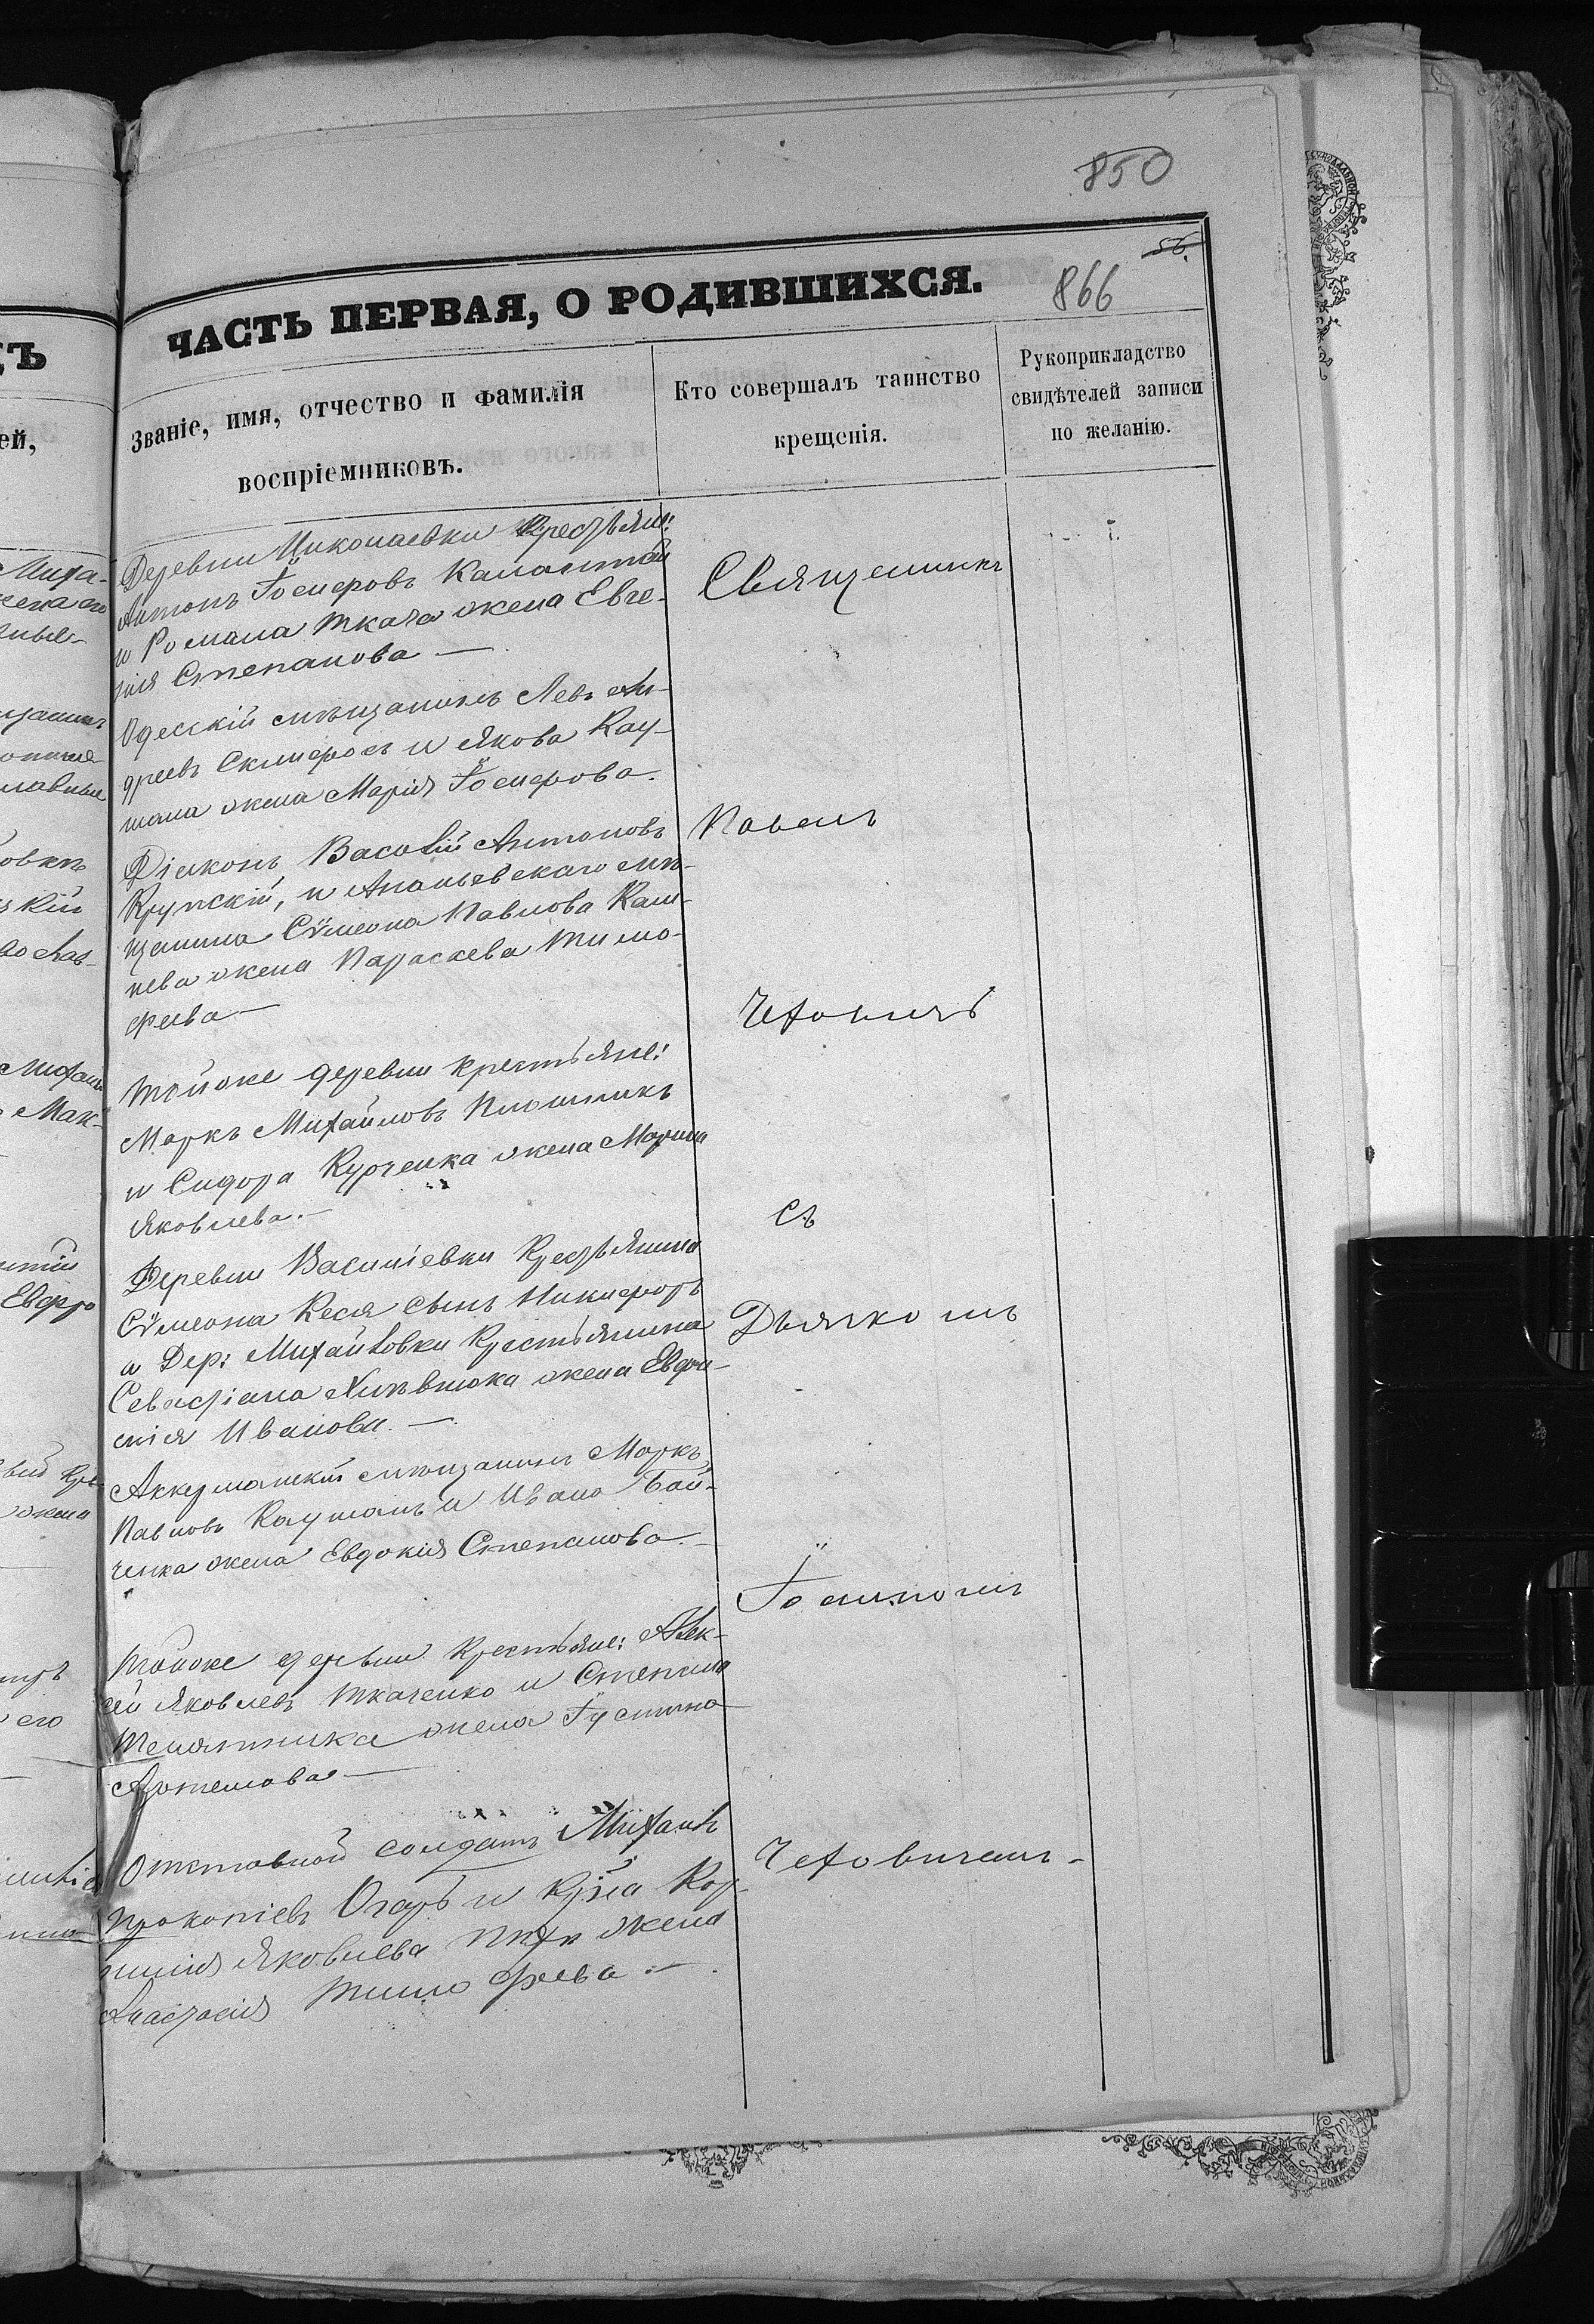 850
56.
ЧАСТЬ ПЕРВАЯ, О РОДИВШИХСЯ.
866
Званіе, имя, отчество и фамилія
воспріемниковъ.
Кто совершалъ таинство
крещенія.
Рукоприкладство
свидѣтелей записи
по желанію.
Деревни Николаевки Крестьян:
Антонъ Іосифовъ
и Романа Ткача жена Евге-
нія Степанова —
Одесскій мѣщанинъ Левъ Ан-
дреевъ и Якова Кау-
мана жена Марія Іосифова.
Діяконъ Василій Антоновъ
Крупскій, и Ананьевскаго мѣ-
щанина Сѵмеона Павлова Каш-
нева жена Параскева Тимо-
феева —
Тойже деревни крестьяне:
Маркъ Михайловъ
и Сидора Курченка жена Марина
Яковлева. —
Деревни Василіевки Крестьянина
Сѵмеона Кеся сынъ Никифоръ
и Дер: Михайловки Крестьянина
Севастіана жена Евфи-
мія Иванова. —
Аккерманскій мѣщанинъ Маркъ
Павловъ Кауманъ и Ивана Бой-
ченка жена Евдокія Степанова. —
Тойже деревни Крестьяне: Алек-
сѣй Яковлевъ Ткаченко и Степана
Телятника жена Іустина
Артемова —
Отставной солдатъ Михаилъ
Прокопіевъ и Кор-
нилія Яковлева жена
Анастасія Тимофеева. —
Священникъ
Павелъ
Чехович
съ
Дьячкомъ
Іоанномъ
Чеховичемъ -